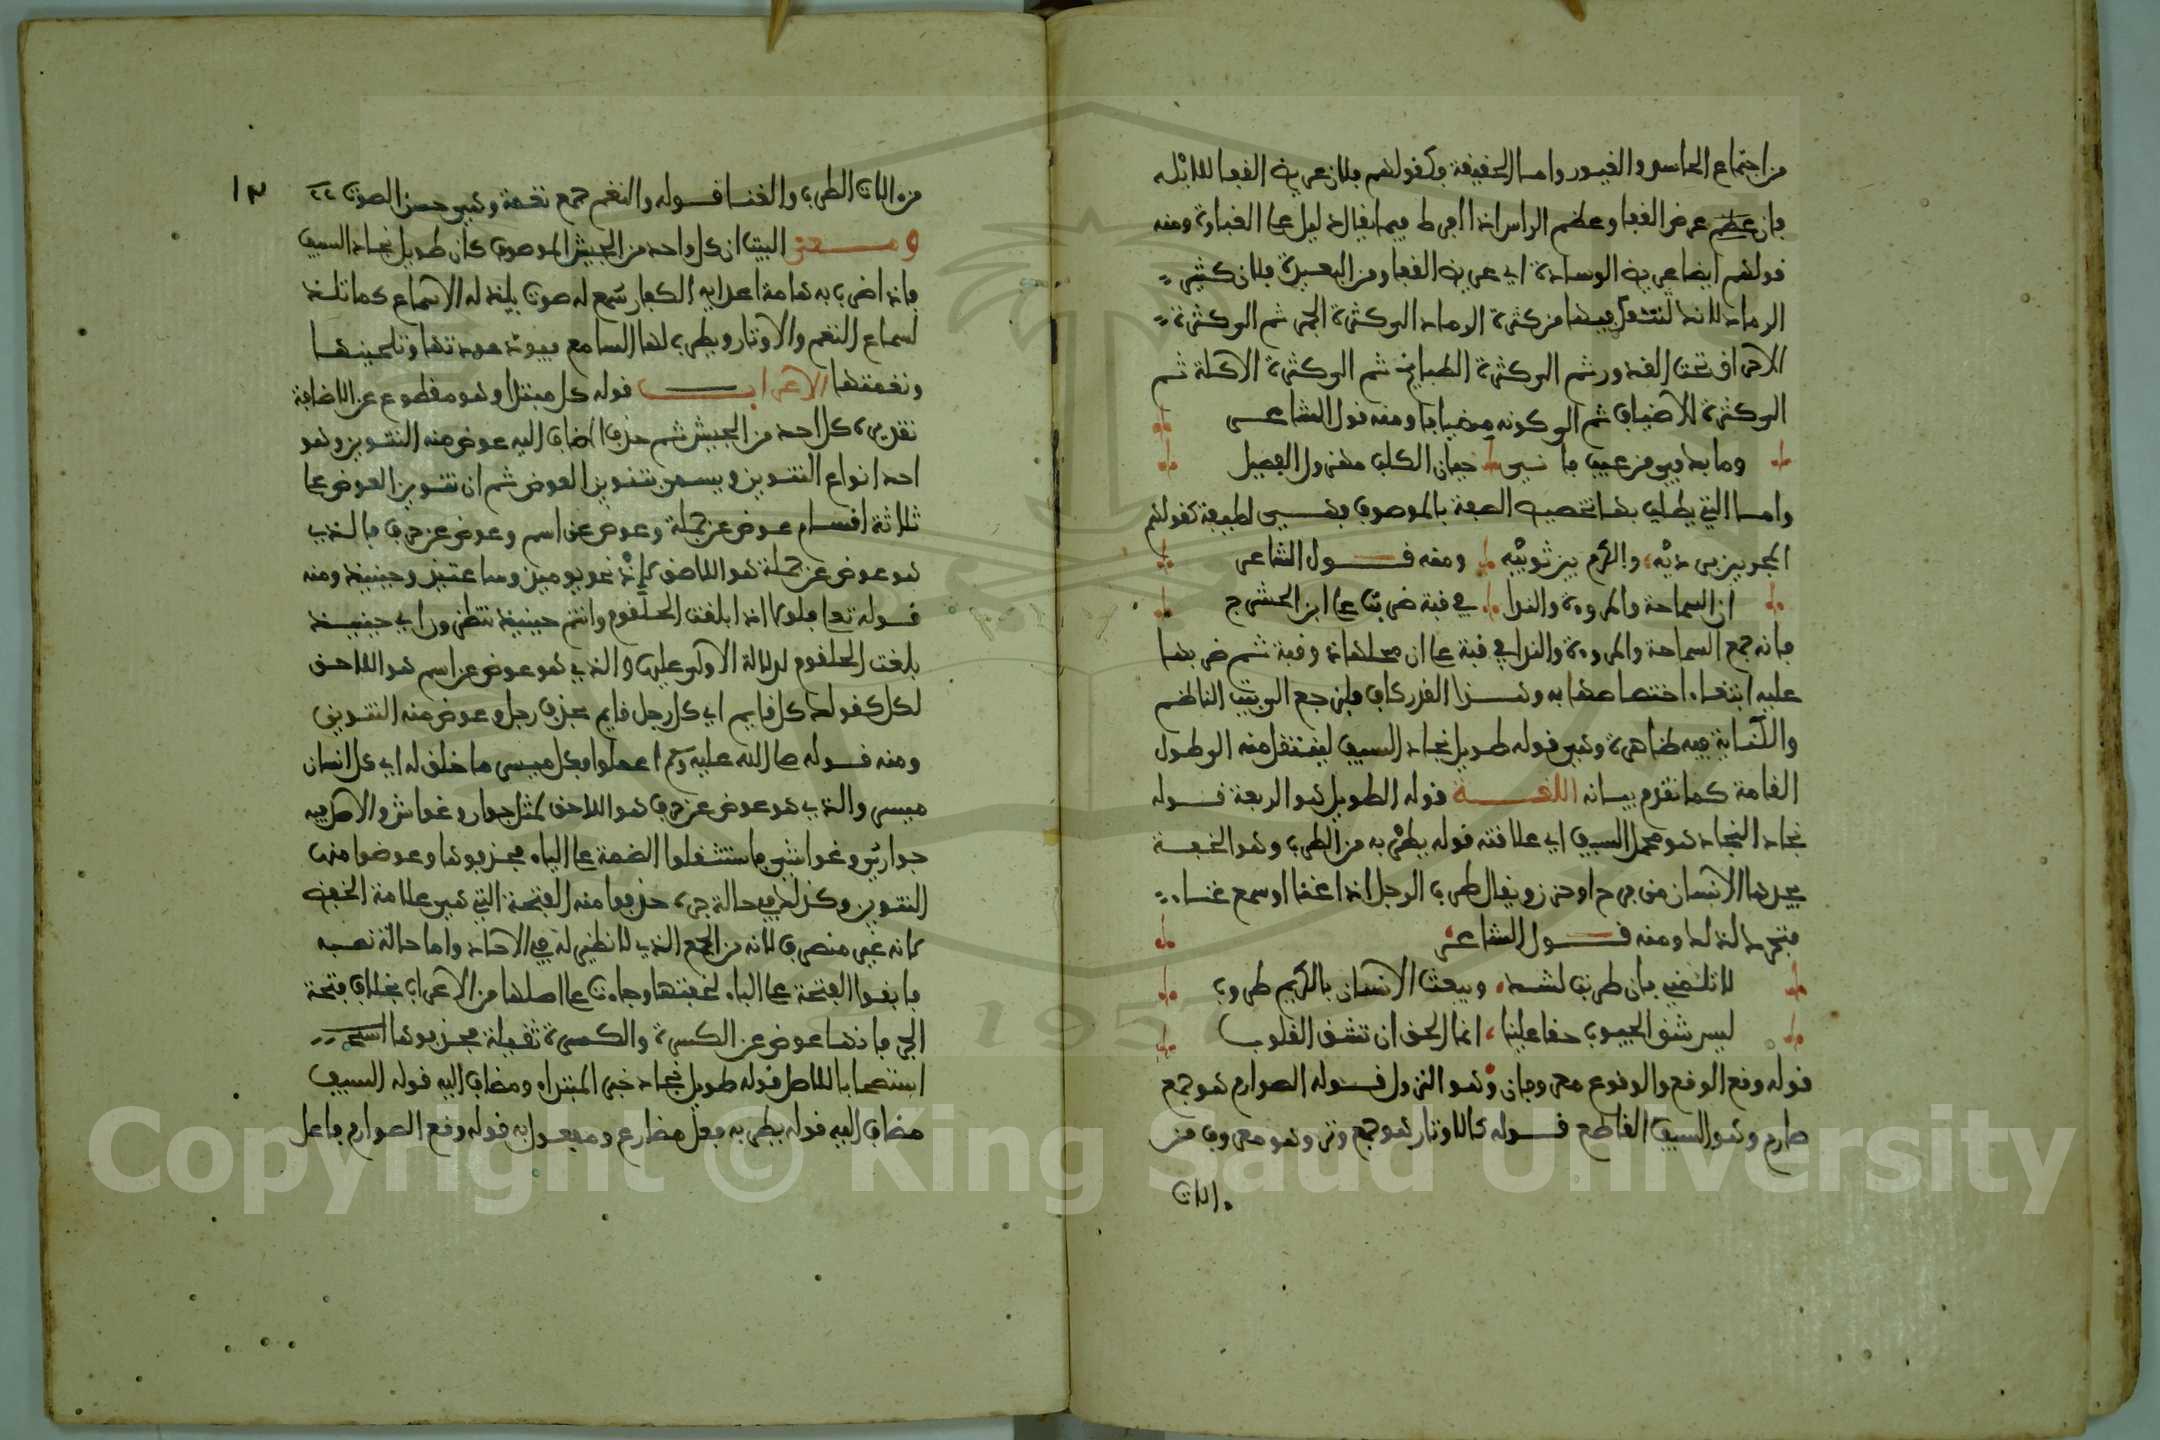 من اجتماع الحاسد والغيور واما الحقيقة فكقولهم فلان عريض القفا للابله
فان عظم عرض القفا وعظم الراس اذا افرط فيما يقال دليل على الغباوة ومنه
قولهم ايضا عريض الوسادة اي عريض القفا ومن البعيدة فلان كثير
الرماد لانه لنتنقل فيها من كثرة الرماد الى كثرة الجمر ثم الى كثرة
الاحراق تحت القدور ثم الى كثرة الطبايخ ثم الى كثرة الاكلة ثم
الى كثرة الاضياف ثم الى كونه مضيافا ومنه قول الشاعر
وما يك في من عيب فاني جبان الكلب مهزول الفصيل
واما التي يطلب بها تخصيص الصفة بالموصوف فهي لطيفة كقولهم
المجد بين برديه والكرم بين ثوبيه ومنه قول الشاعر
ان السماحة والمروءة والندا في قبة ضربت على ابن الحشرج
فانه جمع السماحة والمروءة والندا في قبة على ان محلها ذو قبة ثم ضربها
عليه ابتغاء اختصاصها به وهذا القدر كاف فلنرجع الى بيت الناظم
والكناية فيه ظاهرة وهي قوله طويل نجاد السيف لينتقل منه الى طول
القامة كما تقدم بيانه اللغة قوله الطويل هو الربعة قوله
نجاد النجاد هو محمل السيف اي علاقته قوله يطرب به من الطرب وهو الخفة
يجدها الانسان من فرح او حزن ويقال طرب الرجل اذا غنا او سمع غناء
فتحرك لذلك ومنه قول الشاعر
لا تلمني فان طربت لشدو يبعث الانسان فالكريم طروب
ليس شق الجيوب حقا علينا انما الحق ان تشق القلوب
قوله وقع الوقع والوقوع معروفان وهو النزول قوله الصوارم هو جمع
صارم وهو السيف القاطع قوله كالاوتار هو جمع وتر وهو معروف من
الات
١٣
من الات الطرب والغنا قوله والنغم جمع نغمة وهي حسن الصوت
ومعنى البيت ان كل واحد من الجيش الموصوف كان طويل نجاد السيف
فاذا ضرب به هامة اعدايه الكفار سمع له صوت يلذ له الاسماع كما تلذ
لسماع النغم والاوتار ويطرب لها السامع فيود عودتها وتلحينها
ونغمتها الاعراب قوله كل مبتدا وهو مقطوع عن الاضافة
تقديره كل احد من الجيش ثم حذف المضاف اليه عوض منه التنوين وهو
احد انواع التنوين ويسمى تنوين العوض ثم ان تنوين العوض على
ثلاثة اقسام عوض عن جملة وعوض عن اسم وعوض عن حرف فالذي
هو عوض عن جملة هو اللاحق لاذ نحو يومئذ وساعتئذ وحينئذ ومنه
قوله تعالى فلولا اذا بلغت الحلقوم وانتم حينئذ تنظرون اي حينئذ
بلغت الحلقوم لدلالة الاولى عليها والذي هو عوض عن اسم هو اللاحق
لكل كقولك كل قايم اي كل رجل قايم بحذف رجل وعوض منه التنوين
ومنه قوله صلى الله عليه وسلم اعملوا فكل ميسر ما خلق له اي كل انسان
ميسر والذي هو عوض عن حرف هو اللاحق لمثل جوار وغواش والاصل فيه
جواري وغواشي فاستثقلوا الضمة على الياء فحذفوها وعوضوا منها
التنوين وكذلك في حالة جره حذفوا منه الفتحة التي هي علامة الخفض
لانه غير منصرف لانه من الجمع الذي لا نظير له في الاحاد واما حالة نصبه
فابقوا الفتحة على الياء لخفتها وجاءت على اصلها من الاعراب بخلاف فتحة
الجر فانها عوض عن الكسرة والكسرة ثقيلة فحذفوها
استصحابا للاصل قوله طويل نجاد خبر المبتداء ومضاف اليه قوله السيف
مضاف اليه قوله يطربه فعل مضارع ومفعول به قوله وقع الصوارم فاعل